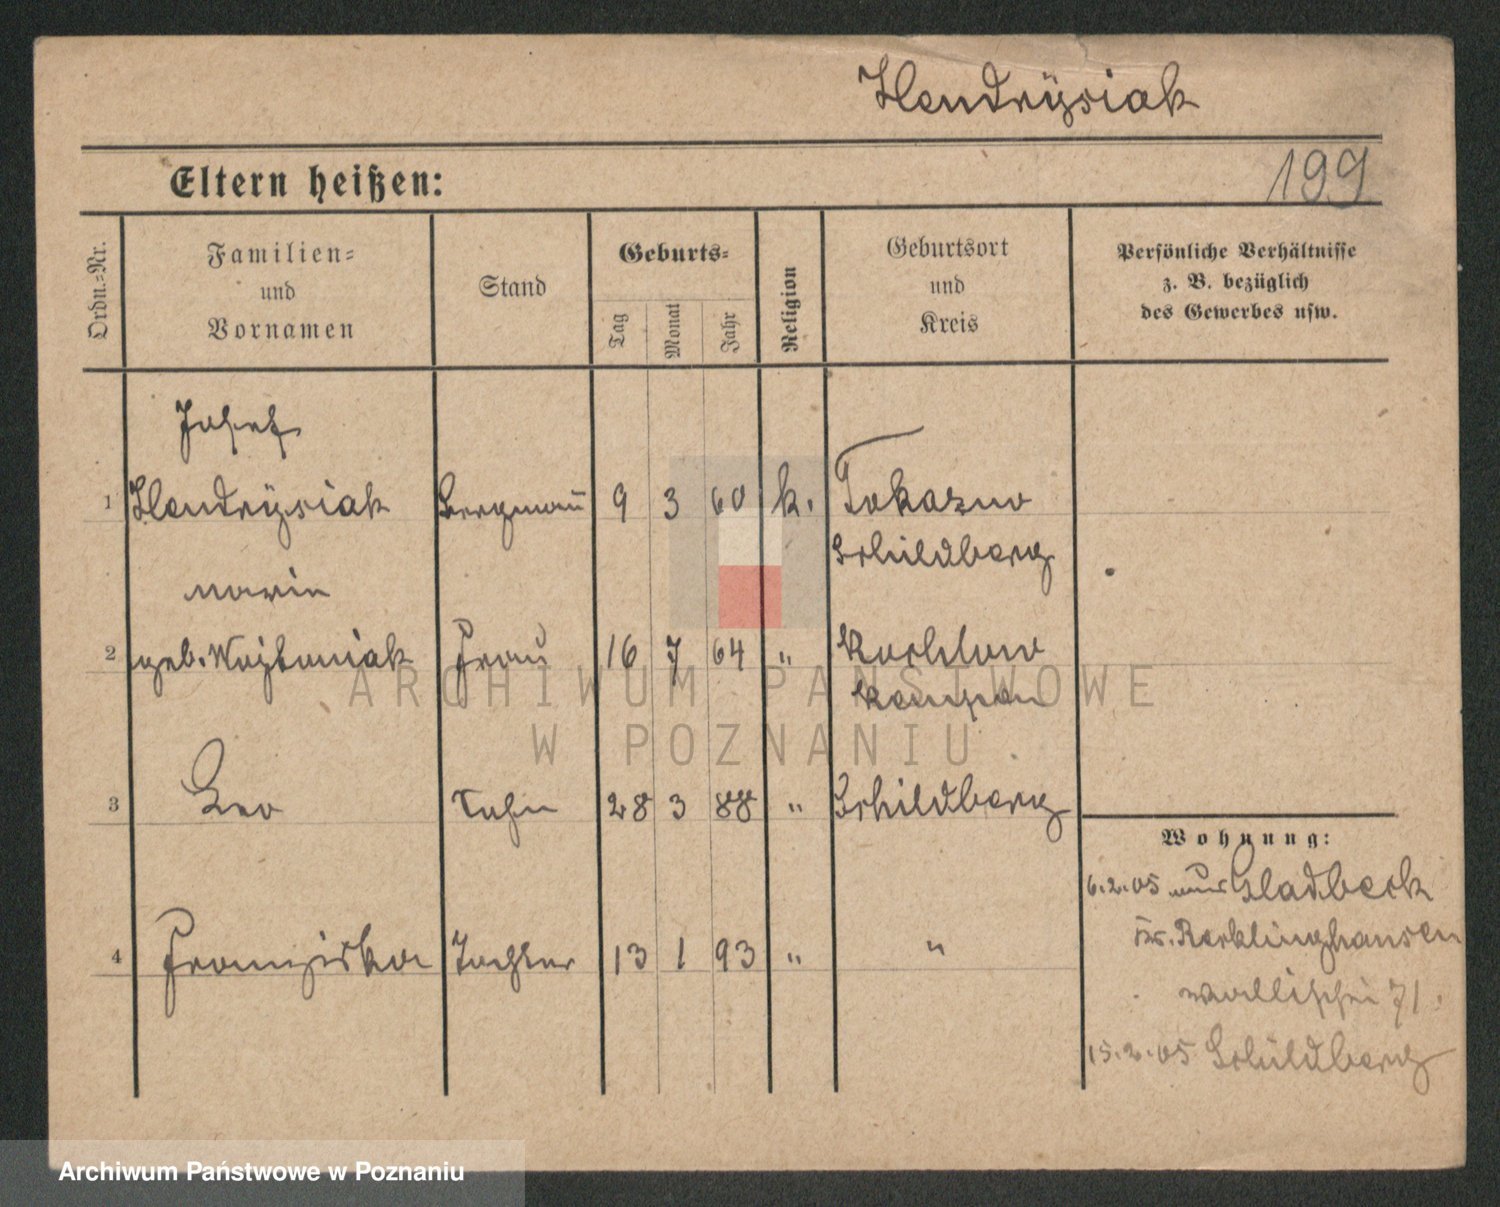 Hendrÿsiak
Eltern heißen:
199
Ordn.-Nr.
Familien-
und
Vornamen
Stand
Geburts-
Tag
Monat
Jahr
Religion
Geburtsort
und
Kreis
Persönliche Verhältnisse
z. B. bezüglich
des Gewerbes usw.
Josef
1 Hendrÿsiak Bergmañ 9 3 60 k. Tokarzew
Schildberg
Marie
2 geb. Wojtaniak Frau 16 7 64 " Kochlow
Kempen
3 Leo Sohn 28 3 88 " Schildberg
Wohnung:
6.2.05 aus Gladbeck
Kr. Recklinghausen
4 Franziska Tochter 13 1 93 " "
Wallischei 71.
15.2.05 Schildberg
ARCHIWUM PAŃSTWOWE
W POZNANIU
Archiwum Państwowe w Poznaniu